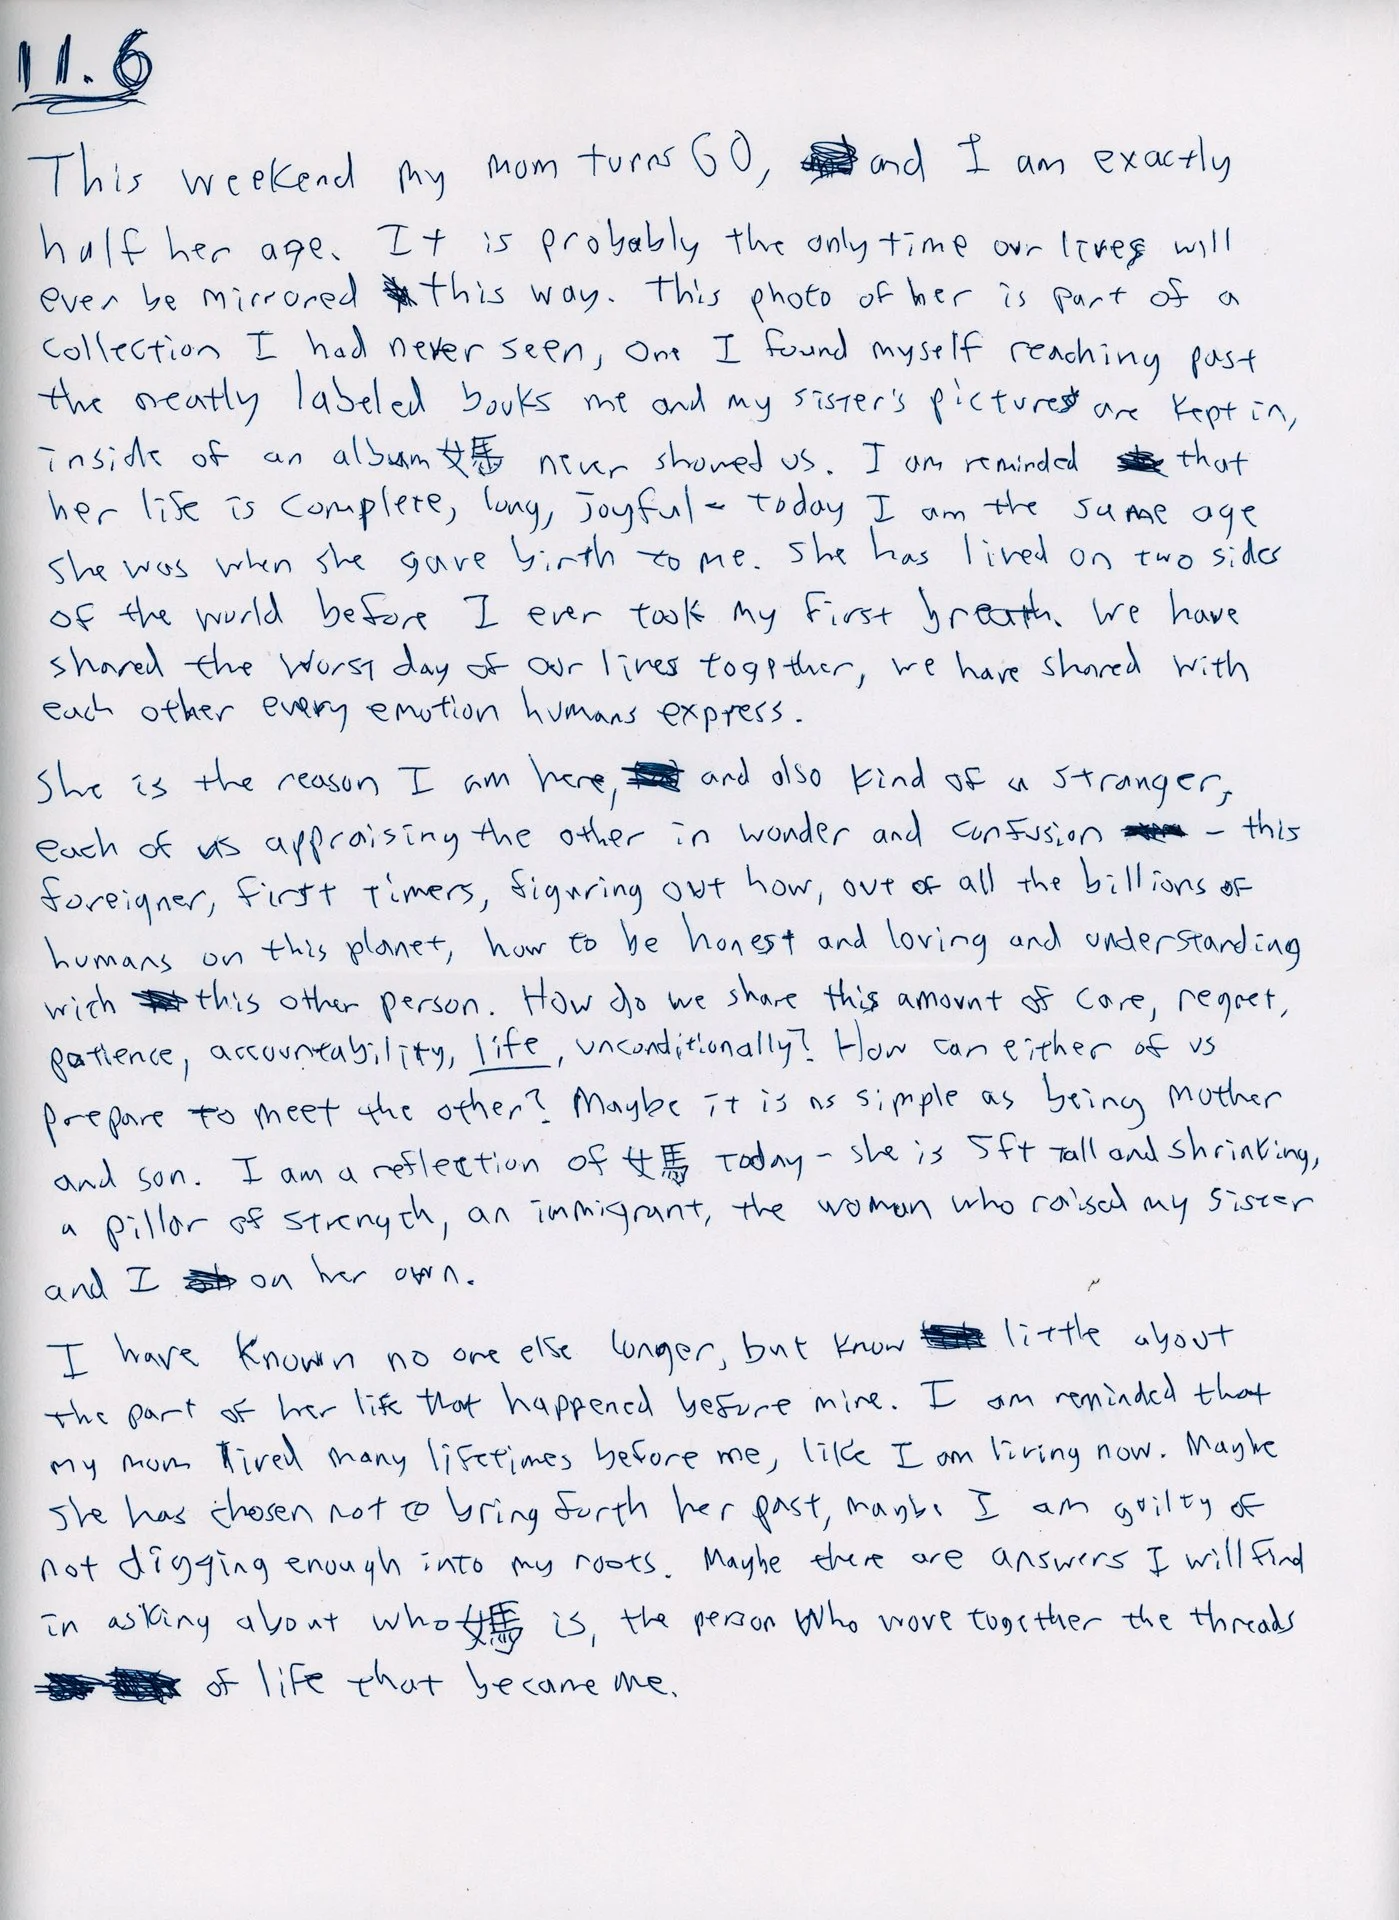 11.6
This weekend my mom turns 60, and I am exactly
half her age. It is probably the only time our lives will
ever be mirrored this way. This photo of her is part of a
collection I had never seen, one I found myself reaching past
the neatly labeled books me and my sister's pictures are kept in,
inside of an album 媽 never showed us. I am reminded that
her life is complete, long, joyful - today I am the same age
she was when she gave birth to me. She has lived on two sides
of the world before I ever took my first breath. We have
shared the worst day of our lives together, we have shared with
each other every emotion humans express.
She is the reason I am here, and also kind of a stranger,
each of us appraising the other in wonder and confusion - this
foreigner, first timers, figuring out how, out of all the billions of
humans on this planet, how to be honest and loving and understanding
with this other person. How do we share this amount of care, regret,
patience, accountability, life, unconditionally? How can either of us
prepare to meet the other? Maybe it is as simple as being mother
and son. I am a reflection of 媽 today - she is 5ft tall and shrinking,
a pillar of strength, an immigrant, the woman who raised my sister
and I on her own.
I have known no one else longer, but know little about
the part of her life that happened before mine. I am reminded that
my mom lived many lifetimes before me, like I am living now. Maybe
she has chosen not to bring forth her past, maybe I am guilty of
not digging enough into my roots. Maybe there are answers I will find
in asking about who 媽 is, the person who wove together the threads
of life that became me.